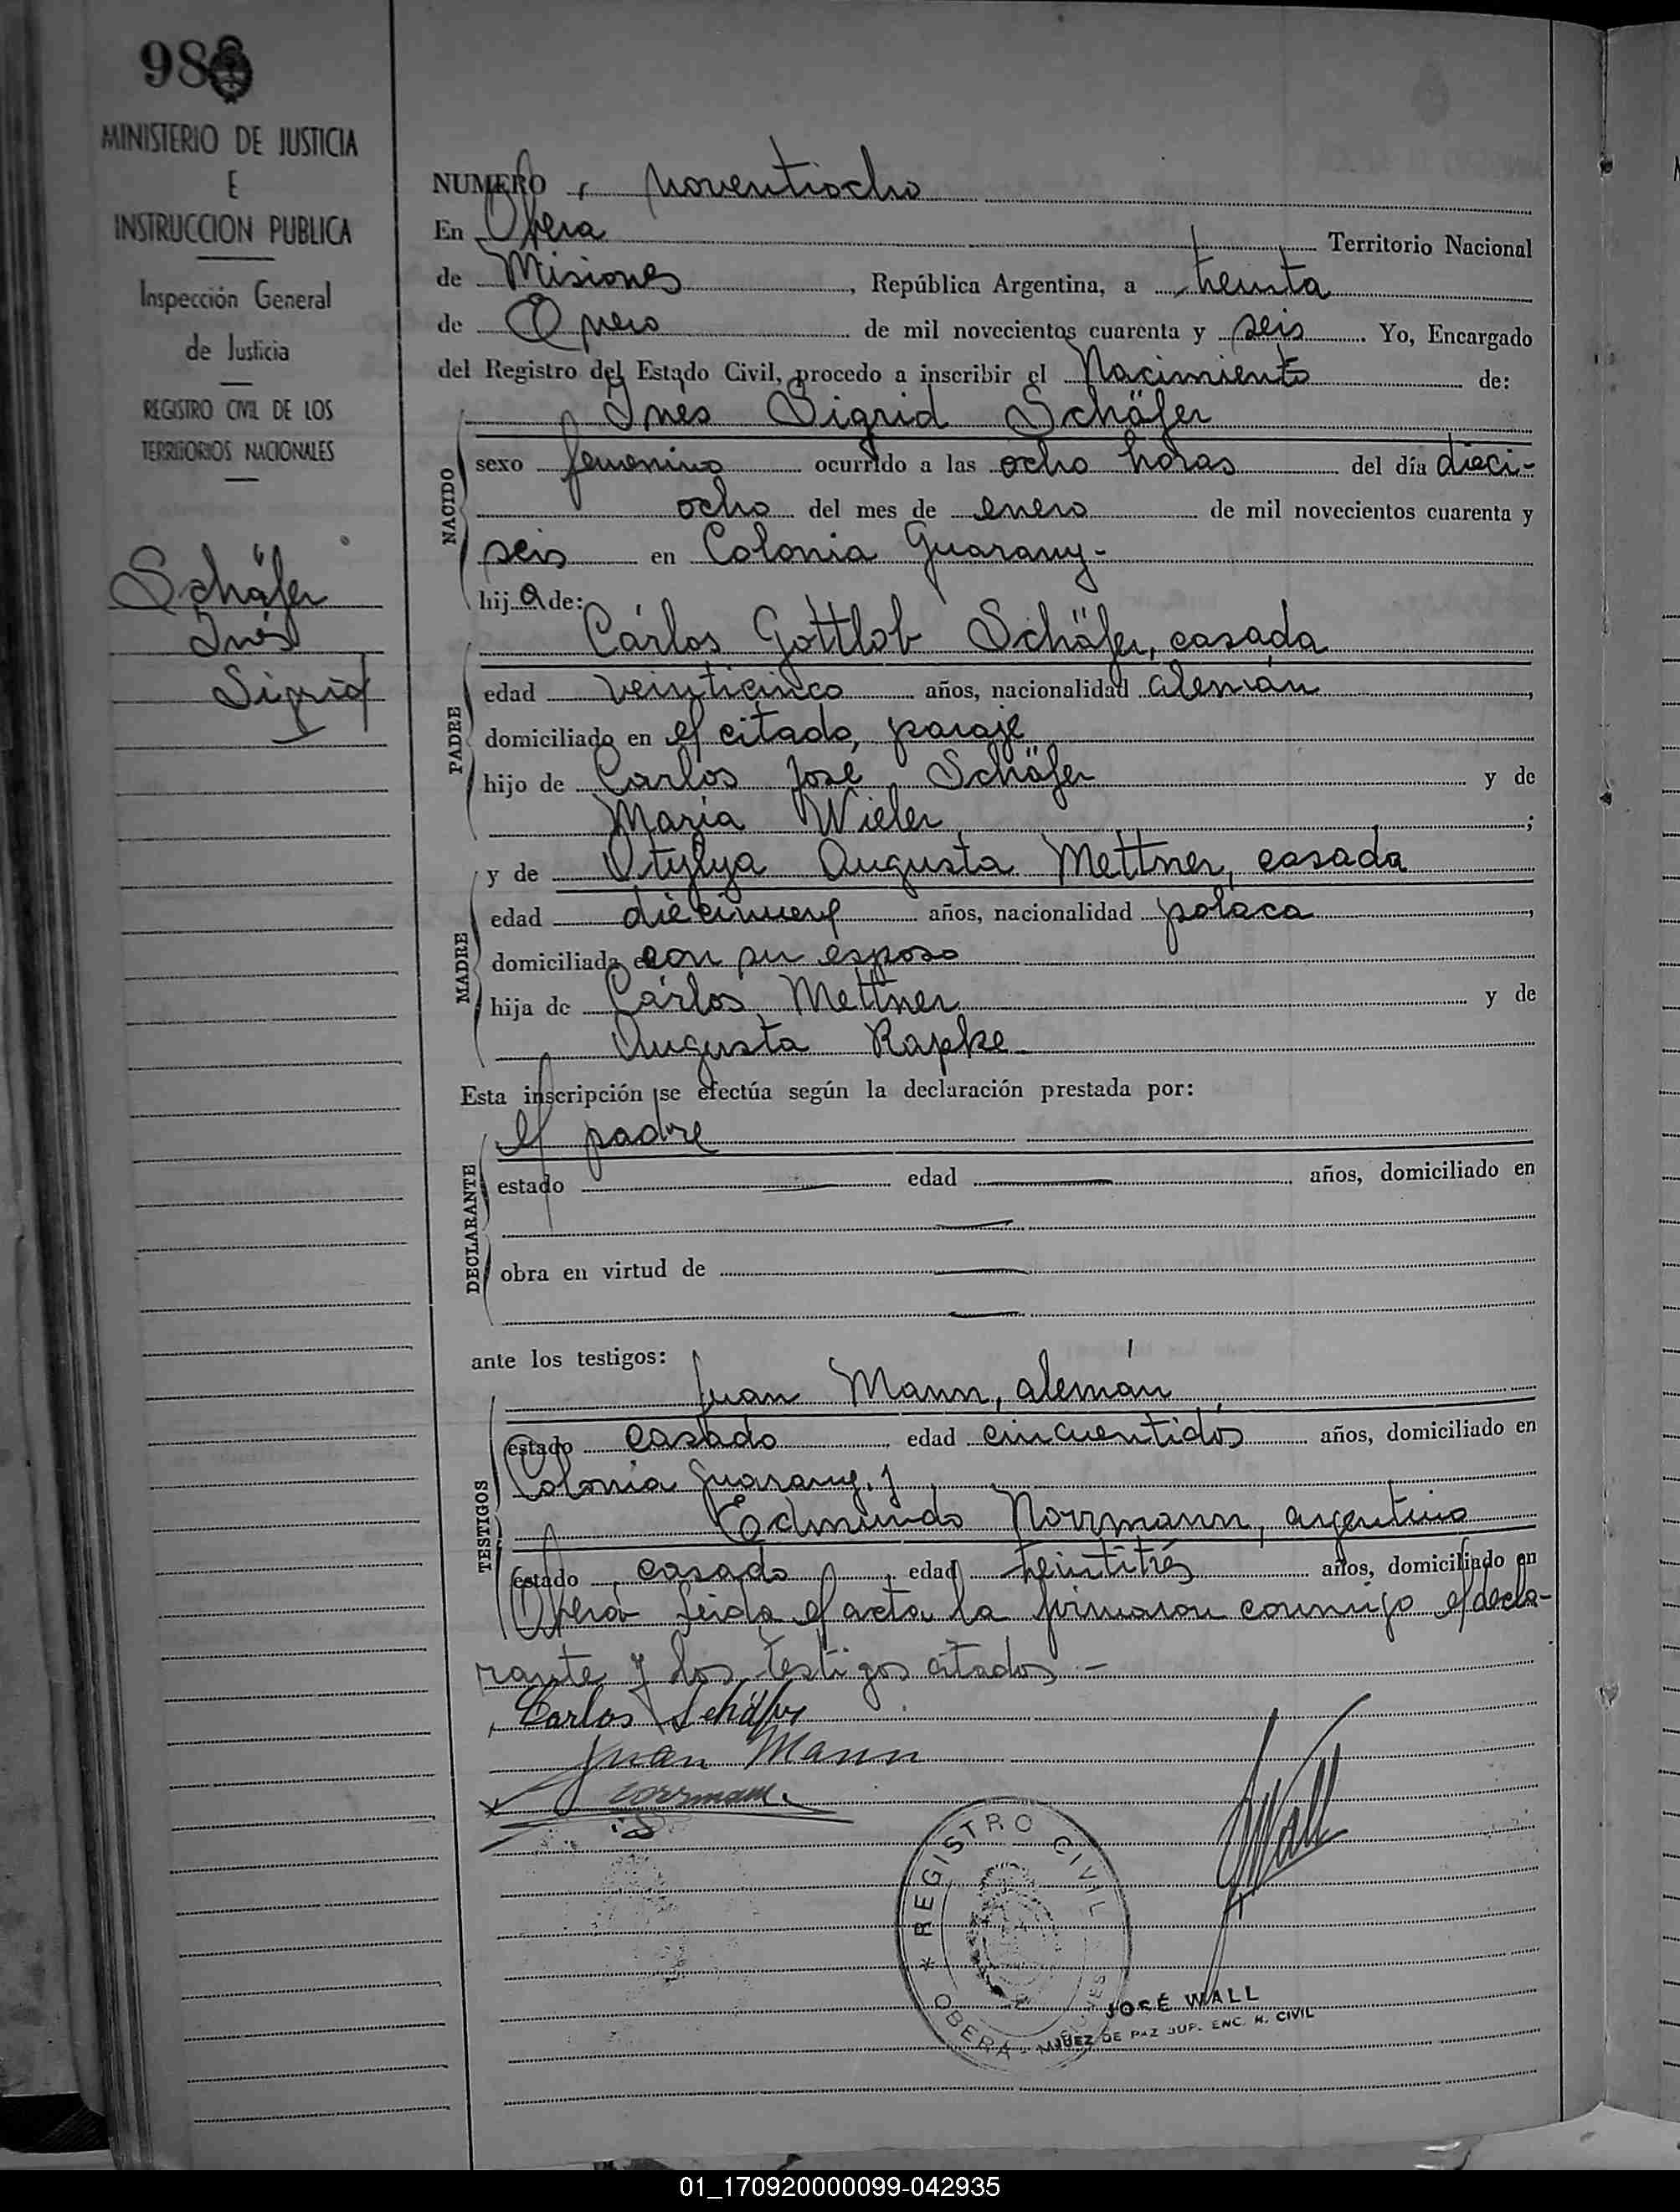 98
MINISTERIO DE JUSTICIA
E
INSTRUCCION PUBLICA
Inspección General
de Justicia
REGISTRO CIVIL DE LOS
TERRITORIOS NACIONALES
Schäfer
Inés
Sigrid
NUMERO noventiocho
En Obera Territorio Nacional
de Misiones, República Argentina, a treinta
de Enero de mil novecientos cuarenta y seis. Yo, Encargado
del Registro del Estado Civil, procedo a inscribir el Nacimiento de:
Inés Sigrid Schäfer
NACIDO
sexo femenino ocurrido a las ocho horas del día dieci-
ocho del mes de enero de mil novecientos cuarenta y
seis en Colonia Guarany-
hija de:
Cárlos Gottlob Schäfer, casada
PADRE
edad veinticinco años, nacionalidad alemán,
domiciliado en el citado, paraje
hijo de Carlos José Schäfer y de
Maria Wieler;
y de Otylya Augusta Mettner, casada
MADRE
edad diecinueve años, nacionalidad polaca,
domiciliada con su esposo
hija de Cárlos Mettner y de
Augusta Rapke.
Esta inscripción se efectúa según la declaración prestada por:
el padre
DECLARANTE
estado edad años, domiciliado en
obra en virtud de
ante los testigos:
Juan Mann, alemán
TESTIGOS
estado casado edad cincuentidós años, domiciliado en
Colonia Guarany, y
Edmundo Norrmann, argentino
estado casado edad treintitrés años, domiciliado en
Oberá leida el acta la firmaron conmigo el decla-
rante y los testigos citados.-
Carlos Schäfer
Juan Mann
Norrmann.
JWall
* REGISTRO CIVIL
OBERA - MISIONES
JOSÉ WALL
JUEZ DE PAZ SUP. ENC. R. CIVIL
01_170920000099-042935